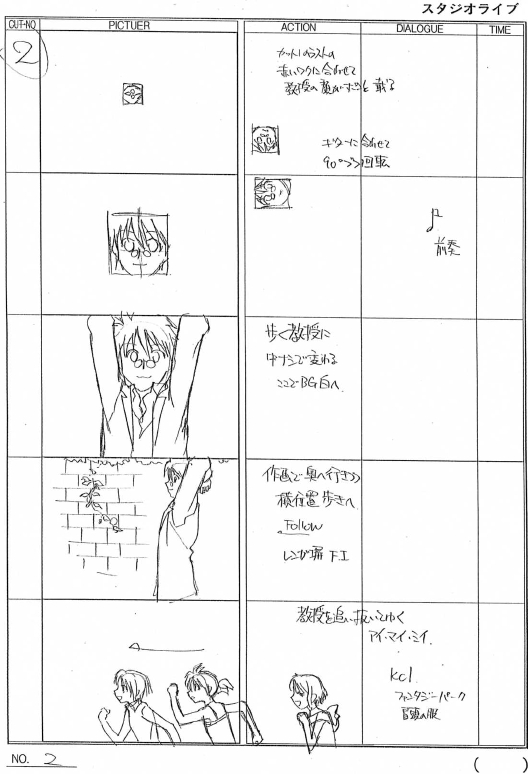 スタジオライブ
CUT-NO
PICTUER
ACTION
DIALOGUE
TIME
2
カット1のラストの
赤いワクに合わせて
教授の顔が
載る
ギターに合わせて
90°づつ回転
♪
前奏
歩く教授に
中ナシで変わる
ここでBG白へ
作画で奥へ行きつつ
横位置歩きへ
Follow
レンガ塀 F.I
教授を追い抜いてゆく
アイ・マイ・ミイ
ファンタジーパーク
冒頭の服
NO. 2
( )